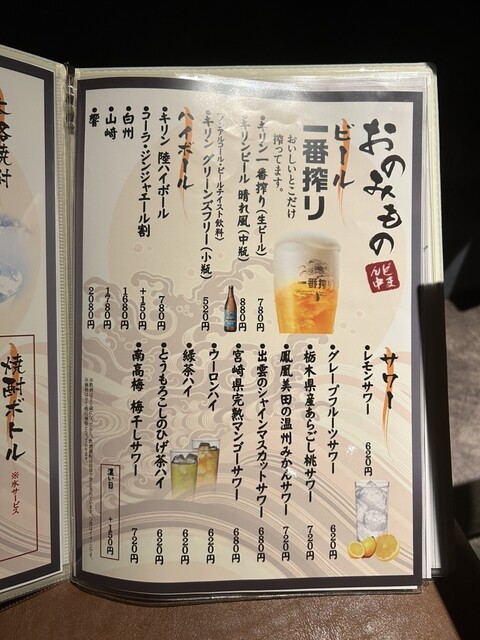 おのみもの
ビール
一番搾り
おいしいとこだけ
搾ってます。
キリン 一番搾り（生ビール） 780円
キリンビール 晴れ風（中瓶） 880円
〈ノンアルコール・ビールテイスト飲料〉
キリン グリーンズフリー（小瓶） 520円
ハイボール
・キリン 陸ハイボール 780円
・コーラ・ジンジャエール割 +150円
・白州 1680円
・山崎 1780円
・響 2080円
サワー
・レモンサワー 620円
・グレープフルーツサワー 620円
・栃木県産あらごし桃サワー 720円
・鳳凰美田の温州みかんサワー 720円
・出雲のシャインマスカットサワー 680円
・宮崎県完熟マンゴーサワー 680円
・ウーロンハイ 620円
・緑茶ハイ 620円
・とうもろこしのひげ茶ハイ 620円
・南高梅 梅干しサワー 720円
濃い目 +150円
本格焼酎
焼酎ボトル
※氷サービス